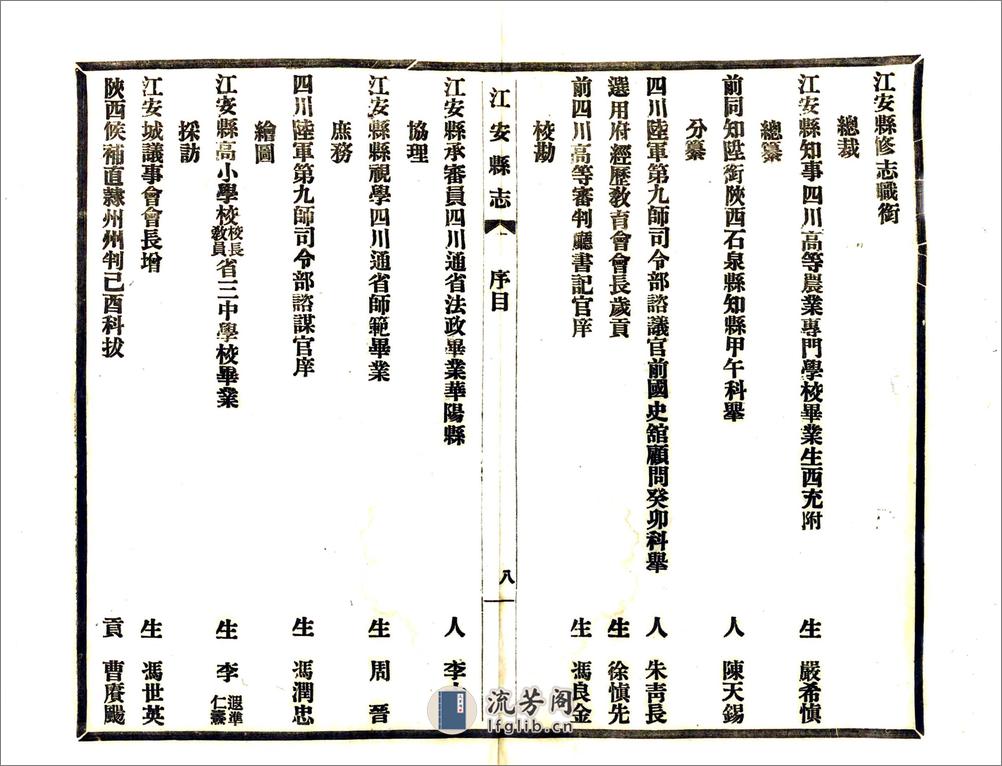 江安縣修志職銜
總裁
江安縣知事四川高等農業專門學校畢業生西充附生 嚴希慎
總纂
前同知陞銜陝西石泉縣知縣甲午科舉人 陳天錫
分纂
四川陸軍第九師司令部諮議官前國史舘顧問癸卯科舉人 朱青長
選用府經歷教育會會長歲貢生 徐慎先
前四川高等審判廳書記官庠生 馮良金
校勘
江安縣志 序目 八
江安縣承審員四川通省法政畢業華陽縣人 李
協理
江安縣縣視學四川通省師範畢業生 周晉
庶務
四川陸軍第九師司令部諮謀官庠生 馮潤忠
繪圖
江安縣高小學校校長教員省三中學校畢業生 李遐準仁
採訪
江安城議事會會長增生 馮世英
陝西候補直隸州州判己酉科拔貢 曹賡颺
流芳阁
lfglib.cn